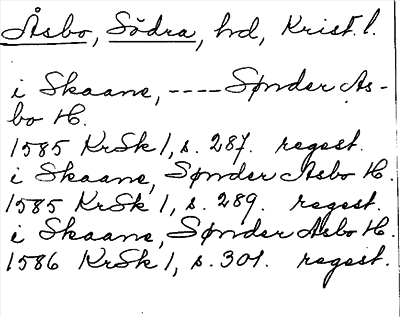 Åsbo, Södra, hd, Krist. l.
i Skaane, ----Sønder As-
bo H.
1585 KrSk 1, s. 287. regest.
i Skaane, Sønder Asbo H.
1585 KrSk 1, s. 289. regest.
i Skaane, Sønder Asbo H.
1586 KrSk 1, s. 301. regest.